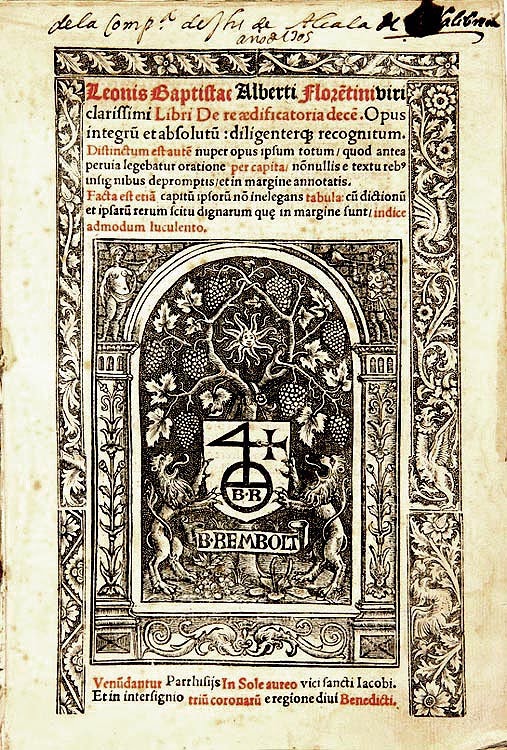 dela Compª. de Jhs de Alcala
año de 1705
Leonis Baptistae Alberti Florētini viri
clarissimi Libri De re ædificatoria decē. Opus
integrū et absolutū: diligenterq₃ recognitum.
Distinctum est autē nuper opus ipsum totum/ quod antea
peruia legebatur oratione per capita/ nōnullis e textu reb⁹
insignibus depromptis/ et in margine annotatis.
Facta est etiā capitū ipsorū nō inelegans tabula: cū dictionū
et ipsarū rerum scitu dignarum quę in margine sunt/ indice
admodum luculento.
B·R
B·REMBOLT
Venūdantur Parrhisijs In Sole aureo vici sancti Iacobi.
Et in intersignio triū coronarū e regione diui Benedicti.